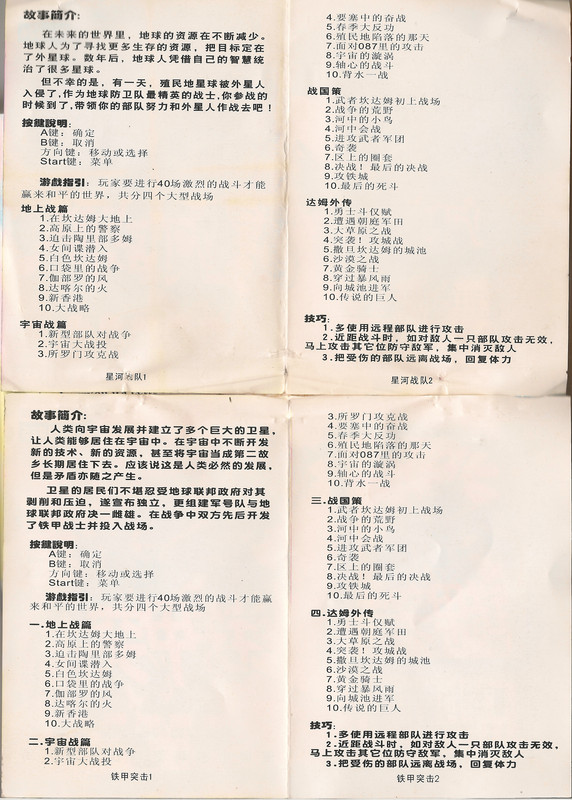 故事简介:
在未来的世界里，地球的资源在不断减少。
地球人为了寻找更多生存的资源，把目标定在
了外星球。数年后，地球人凭借自己的智慧统
治了很多星球。
但不幸的是，有一天，殖民地星球被外星人
入侵了,作为地球防卫队最精英的战士,你参战的
时候到了,带领你的部队努力和外星人作战去吧！
按鍵說明:
A键：确定
B键：取消
方向键：移动或选择
Start键：菜单
游戲指引：玩家要进行40场激烈的战斗才能
赢来和平的世界，共分四个大型战场
地上战篇
1.在坎达姆大地上
2.高原上的警察
3.迫击陶里部多姆
4.女间谍潜入
5.白色坎达姆
6.口袋里的战争
7.伽部罗的风
8.达喀尔的火
9.新香港
10.大战略
宇宙战篇
1.新型部队对战争
2.宇宙大战投
3.所罗门攻克战
星河战队1
4.要塞中的奋战
5.春季大反功
6.殖民地陷落的那天
7.面对087里的攻击
8.宇宙的漩涡
9.轴心的战斗
10.背水一战
战国策
1.武者坎达姆初上战场
2.战争的荒野
3.河中的小鸟
4.河中会战
5.进攻武者军团
6.奇袭
7.区上的圈套
8.决战！最后的决战
9.攻铁城
10.最后的死斗
达姆外传
1.勇士斗仪赋
2.遭遇朝庭军田
3.大草原之战
4.突袭！攻城战
5.撒旦坎达姆的城池
6.沙漠之战
7.黄金骑士
8.穿过暴风雨
9.向城池进军
10.传说的巨人
技巧:
1.多使用远程部队进行攻击
2.近距战斗时，如对敌人一只部队攻击无效，
马上攻击其它位防守敌军，集中消灭敌人
3.把受伤的部队远离战场，回复体力
星河战队2
故事簡介:
人类向宇宙发展并建立了多个巨大的卫星，
让人类能够居住在宇宙中。在宇宙中不断开发
新的技术、新的资源，甚至将宇宙当成第二故
乡长期居住下去。应该说这是人类必然的发展，
但是矛盾亦随之产生。
卫星的居民们不堪忍受地球联邦政府对其
剥削和压迫，遂宣布独立，更组建军号队与地
球联邦政府决一雌雄。在战争中双方先后开发
了铁甲战士并投入战场。
按鍵說明:
A键：确定
B键：取消
方向键：移动或选择
Start键：菜单
游戲指引：玩家要进行40场激烈的战斗才能赢
来和平的世界，共分四个大型战场
一.地上战篇
1.在坎达姆大地上
2.高原上的警察
3.迫击陶里部多姆
4.女间谍潜入
5.白色坎达姆
6.口袋里的战争
7.伽部罗的风
8.达喀尔的火
9.新香港
10.大战略
二.宇宙战篇
1.新型部队对战争
2.宇宙大战投
铁甲突击1
3.所罗门攻克战
4.要塞中的奋战
5.春季大反功
6.殖民地陷落的那天
7.面对087里的攻击
8.宇宙的漩涡
9.轴心的战斗
10.背水一战
三.战国策
1.武者坎达姆初上战场
2.战争的荒野
3.河中的小鸟
4.河中会战
5.进攻武者军团
6.奇袭
7.区上的圈套
8.决战！最后的决战
9.攻铁城
10.最后的死斗
四.达姆外传
1.勇士斗仪赋
2.遭遇朝庭军田
3.大草原之战
4.突袭！攻城战
5.撒旦坎达姆的城池
6.沙漠之战
7.黄金骑士
8.穿过暴风雨
9.向城池进军
10.传说的巨人
技巧:
1.多使用远程部队进行攻击
2.近距战斗时，如对敌人一只部队攻击无效，
马上攻击其它位防守敌军，集中消灭敌人
3.把受伤的部队远离战场，回复体力
铁甲突击2